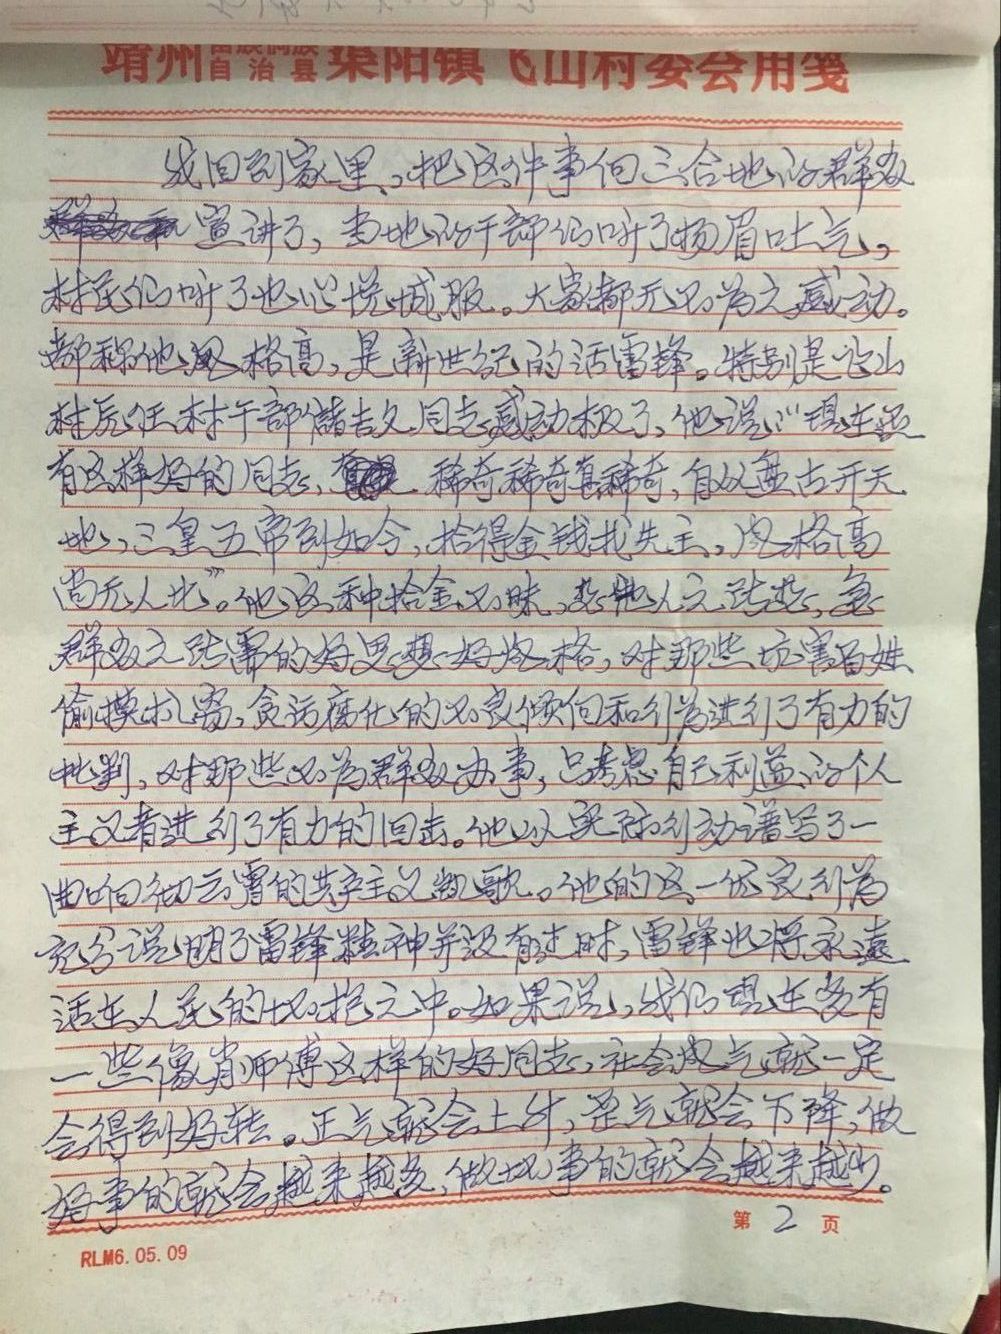 靖州苗族侗族自治县渠阳镇飞山村委会用笺
我回到家里,把这件事向三合地的群众
宣讲了,当地的干部们听了扬眉吐气,
村民们听了也心悦诚服。大家都无不为之感动。
都称他风格高,是新世纪的活雷锋。特别是飞山
村历任村干部储吉文同志感动极了,他说:“现在还
有这样好的同志, 稀奇稀奇真稀奇,自从盘古开天
地,三皇五帝到如今,拾得金钱找失主,风格高
尚无人比”。他这种拾金不昧,想他人之所想,急
群众之所需的好思想好风格,对那些坑害百姓
偷摸扒窃,贪污腐化的不良倾向和行为进行了有力的
批判,对那些不为群众办事,只考虑自己利益的个人
主义者进行了有力的回击。他以实际行动谱写了一
曲响彻云霄的共产主义凯歌。他的这一优良行为
充分说明了雷锋精神并没有过时,雷锋也将永远
活在人民的怀抱之中。如果说,我们现在多有
一些像肖师傅这样的好同志,社会风气就一定
会得到好转。正气就会上升,歪气就会下降,做
好事的就会越来越多,做坏事的就会越来越少。
第 2 页
RLM6.05.09